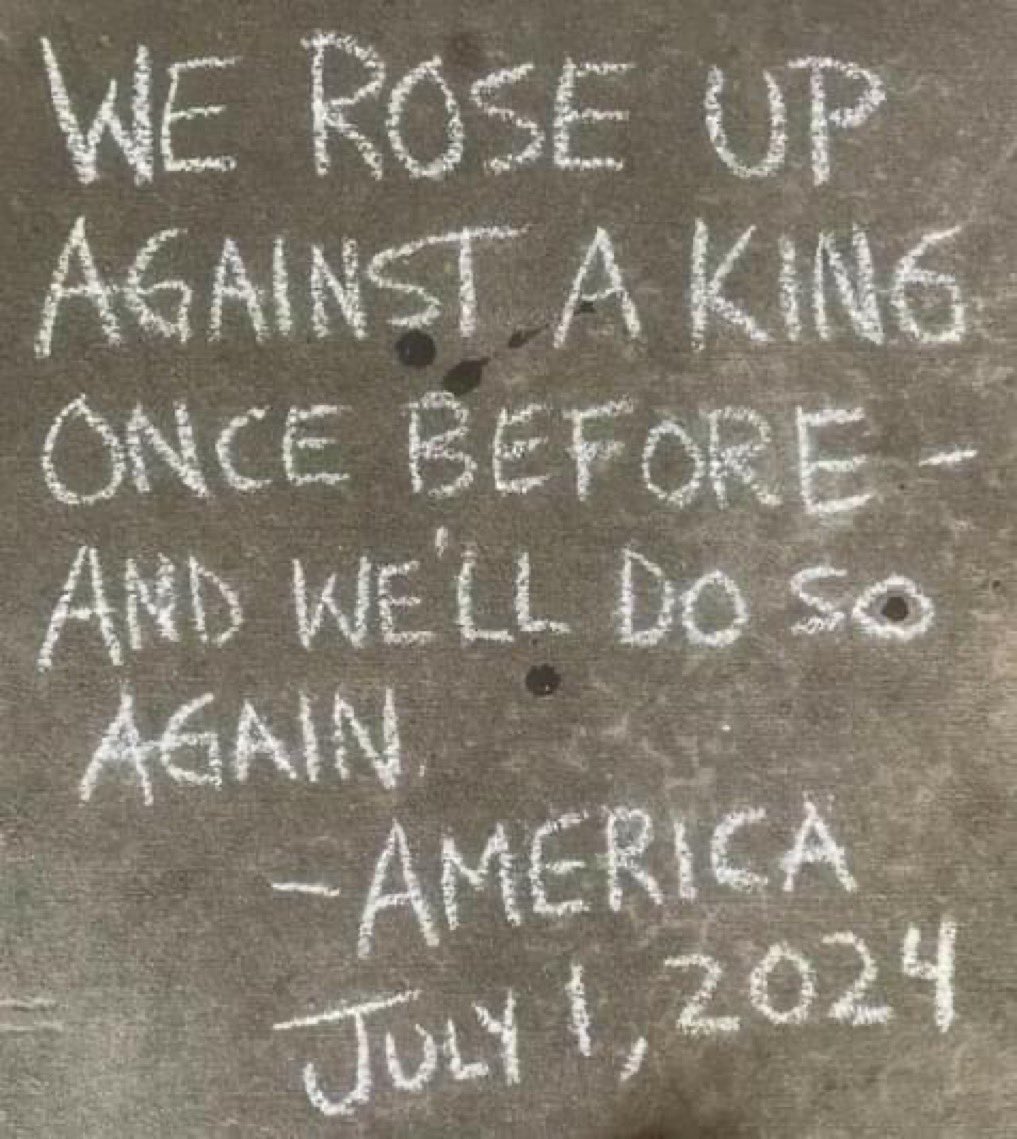 WE ROSE UP
AGAINST A KING
ONCE BEFORE -
AND WE'LL DO SO
AGAIN.
- AMERICA
JULY 1, 2024